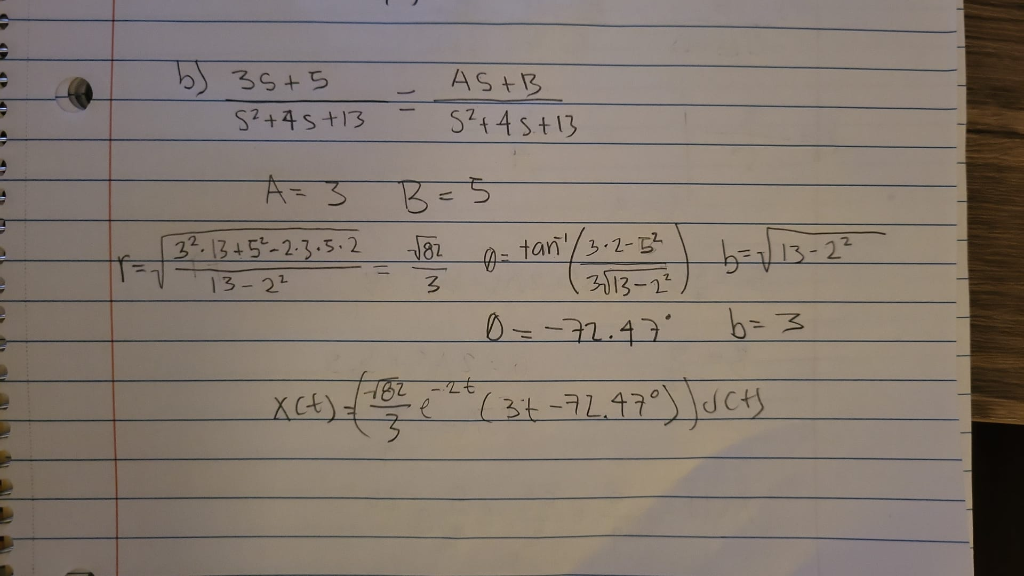 b) (3s+5)/(s²+4s+13) = (As+B)/(s²+4s+13)
A=3 B=5
r=√((3²·13+5²-2·3·5·2)/(13-2²)) = √82/3 θ=tan⁻¹((3·2-5²)/(3√(13-2²))) b=√(13-2²)
θ=-72.47° b=3
x(t)=(√82/3 e^(-2t) (3t-72.47°))u(t)